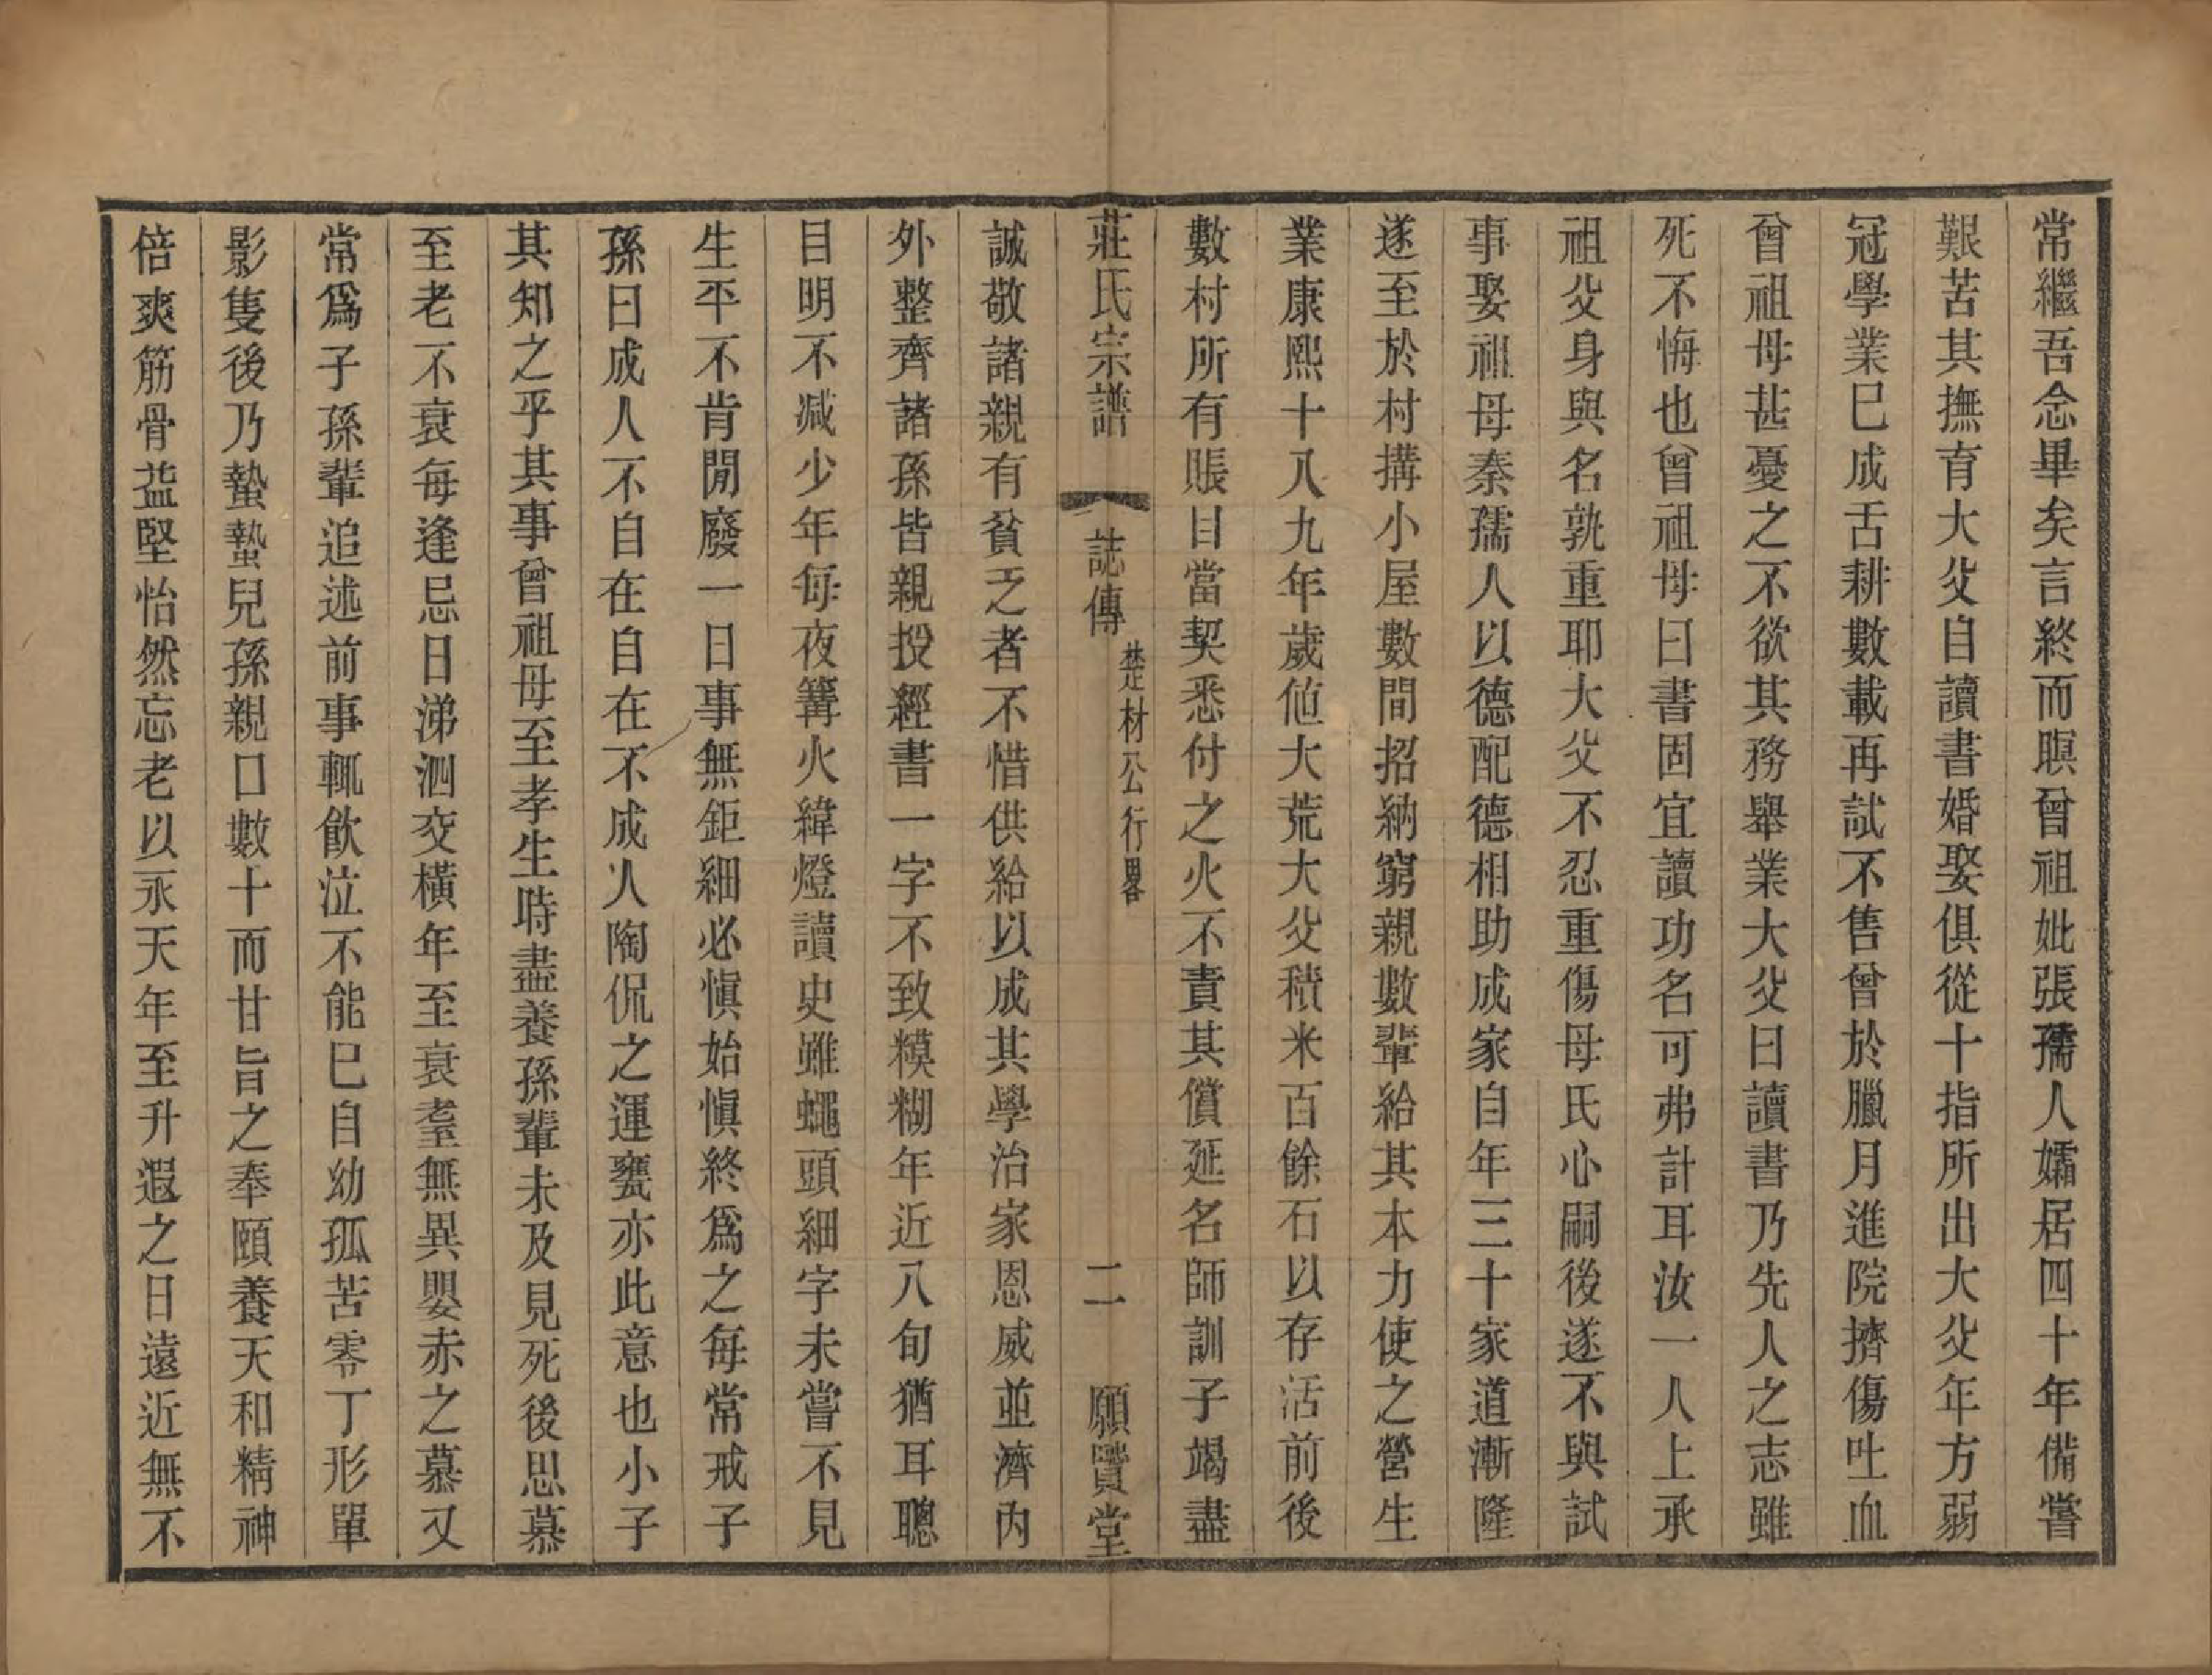 常繼吾念畢矣言終而瞑曾祖妣張孺人孀居四十年備嘗
艱苦其撫育大父自讀書婚娶俱從十指所出大父年方弱
冠學業已成舌耕數載再試不售曾於臘月進院擠傷吐血
曾祖母甚憂之不欲其務舉業大父曰讀書乃先人之志雖
死不悔也曾祖母曰書固宜讀功名可弗計耳汝一人上承
祖父身與名孰重耶大父不忍重傷母氏心嗣後遂不與試
事娶祖母秦孺人以德配德相助成家自年三十家道漸隆
遂至於村搆小屋數間招納窮親數輩給其本力使之營生
業康熙十八九年歲値大荒大父積米百餘石以存活前後
數村所有賬目當契悉付之火不責其償延名師訓子竭盡
莊氏宗譜 誌傳 楚材公行畧 二 願賢堂
誠敬諸親有貧乏者不惜供給以成其學治家恩威並濟內
外整齊諸孫皆親授經書一字不致糢糊年近八旬猶耳聰
目明不减少年每夜篝火緯燈讀史雖蠅頭細字未嘗不見
生平不肯閒廢一日事無鉅細必愼始愼終爲之每常戒子
孫曰成人不自在自在不成人陶侃之運甓亦此意也小子
其知之乎其事曾祖母至孝生時盡養孫輩未及見死後思慕
至老不衰每逢忌日涕泗交橫年至衰耋無異嬰赤之慕又
常爲子孫輩追述前事輒飮泣不能已自幼孤苦零丁形單
影隻後乃蟄蟄兒孫親口數十而甘旨之奉頤養天和精神
倍爽筋骨益堅怡然忘老以永天年至升遐之日遠近無不